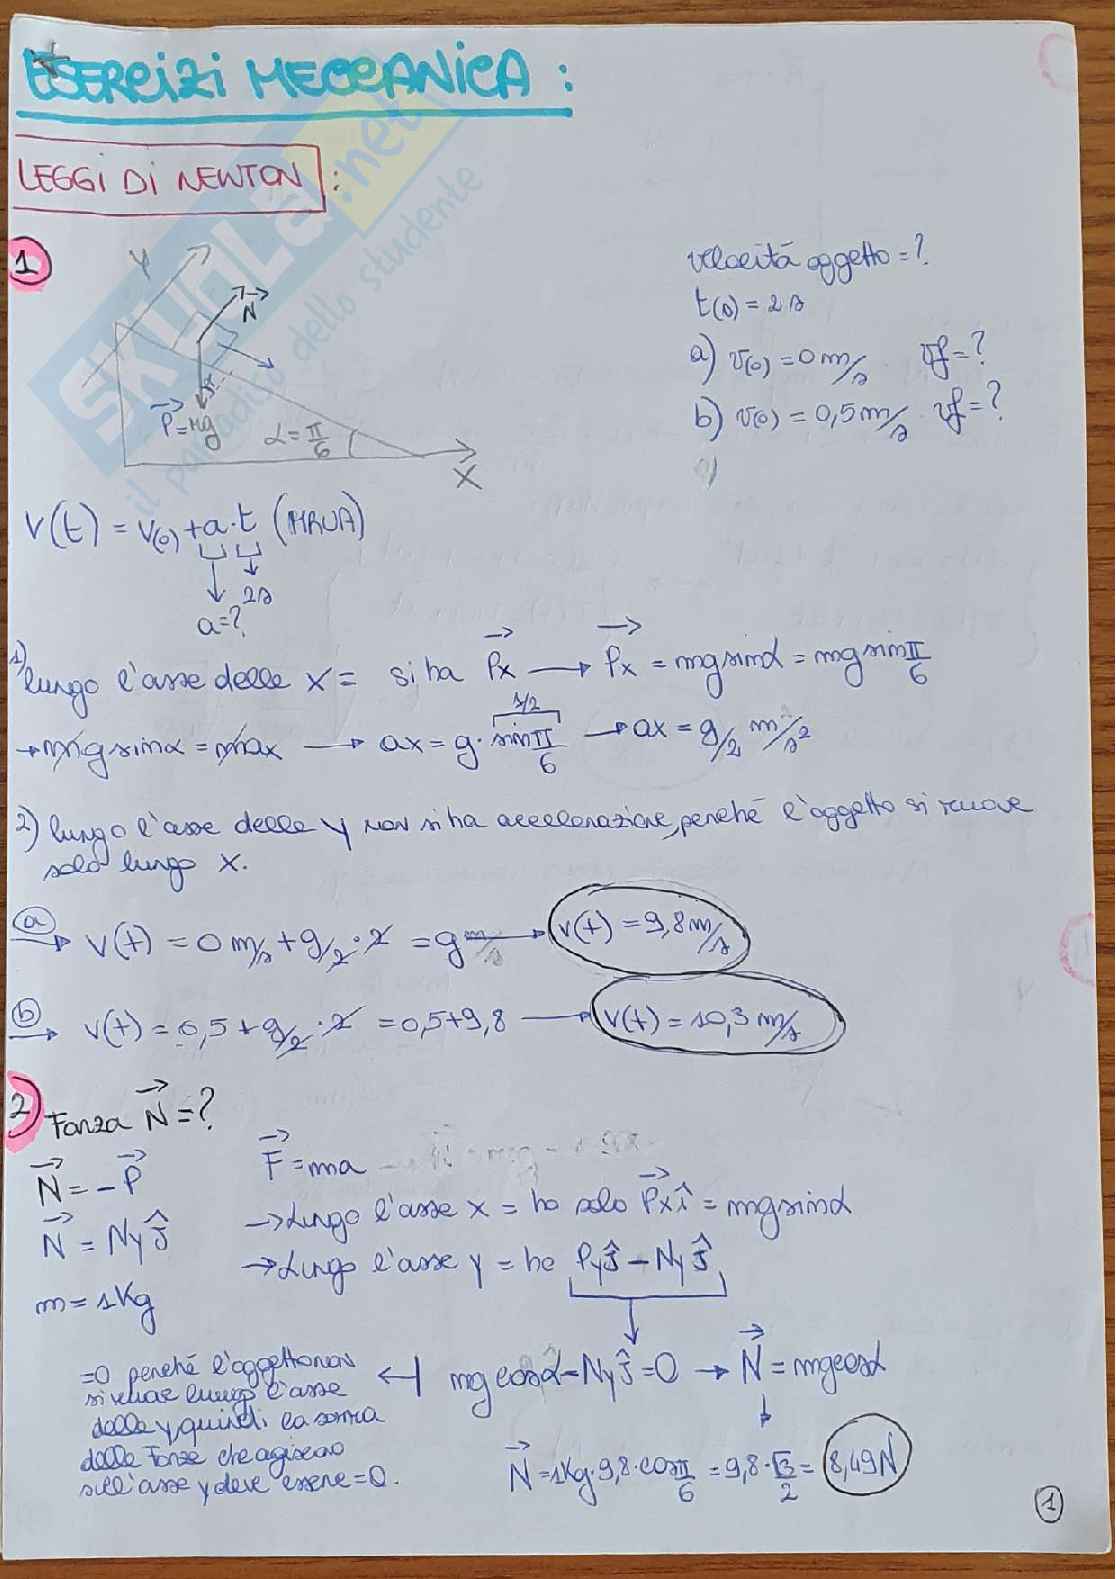 ESERCIZI MECCANICA:
LEGGI DI NEWTON:
SKUOLA.net
il paradiso dello studente
1
Y
N
P=mg
α=π/6
X
velocità oggetto=?
t(s)=2s
a) v(0)=0m/s vf=?
b) v(0)=0,5m/s vf=?
V(t)=V(0)+a·t (MRUA)
2s
a=?
1) lungo l'asse delle x= si ha Px → Px = mgsinα = mgsinπ/6
1/2
→mgsinα=max → ax=g·sinπ/6 → ax=g/2 m/s²
2) lungo l'asse delle y non si ha accelerazione, perché l'oggetto si muove
solo lungo x.
a → V(t)=0m/s+g/2·2 =g m/s → V(t)=9,8m/s
b → V(t)=0,5+g/2·2 =0,5+9,8 → V(t)=10,3m/s
2) Forza N=?
N=-P
N=Nyĵ
m=1Kg
F=ma
→Lungo l'asse x= ho solo Pxî=mgsinα
→Lungo l'asse y= ho Pyĵ-Nyĵ
mgcosα-Nyĵ=0 → N=mgcosα
=0 perché l'oggetto non
si muove lungo l'asse
delle y, quindi la somma
delle forze che agiscono
sull'asse y deve essere=0.
N=1Kg·9,8·cosπ/6=9,8·√3/2=8,49N
1